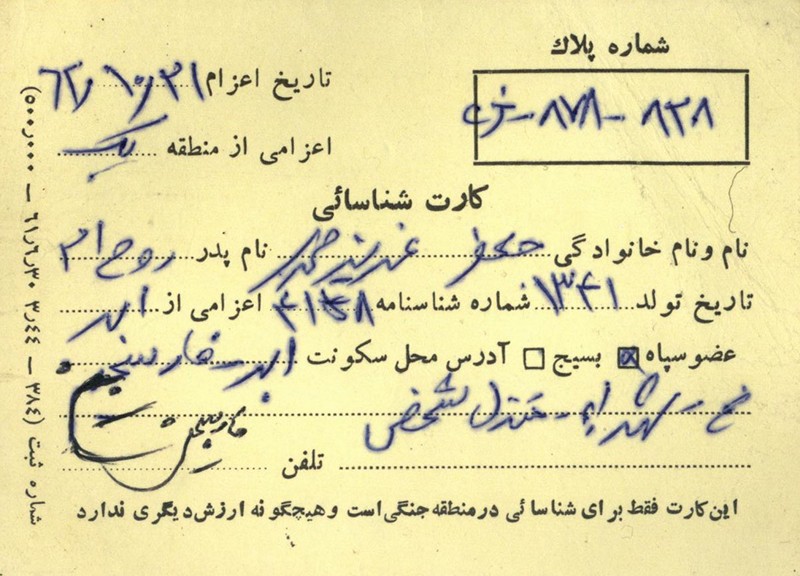 شماره پلاك
۸۳۸ - ۸۷۸ -
تاریخ اعزام ۶۲٫۱۰٫۳۱
اعزامی از منطقه یک
کارت شناسائی
نام ونام خانوادگی جعفر نام پدر روح ا...
تاریخ تولد ۱۳۴۱ شماره شناسنامه اعزامی از ابهر
عضو سپاه بسیج آدرس محل سکونت ابهر
خ - شهدا - منزل شخصی
تلفن
این کارت فقط برای شناسائی در منطقه جنگی است وهیچگونه ارزش دیگری ندارد
شماره ثبت (۳۸۴ — ۳٫۴۴ ۶۱٫۶٫۳۰ — ۵۰۰٫۰۰۰)